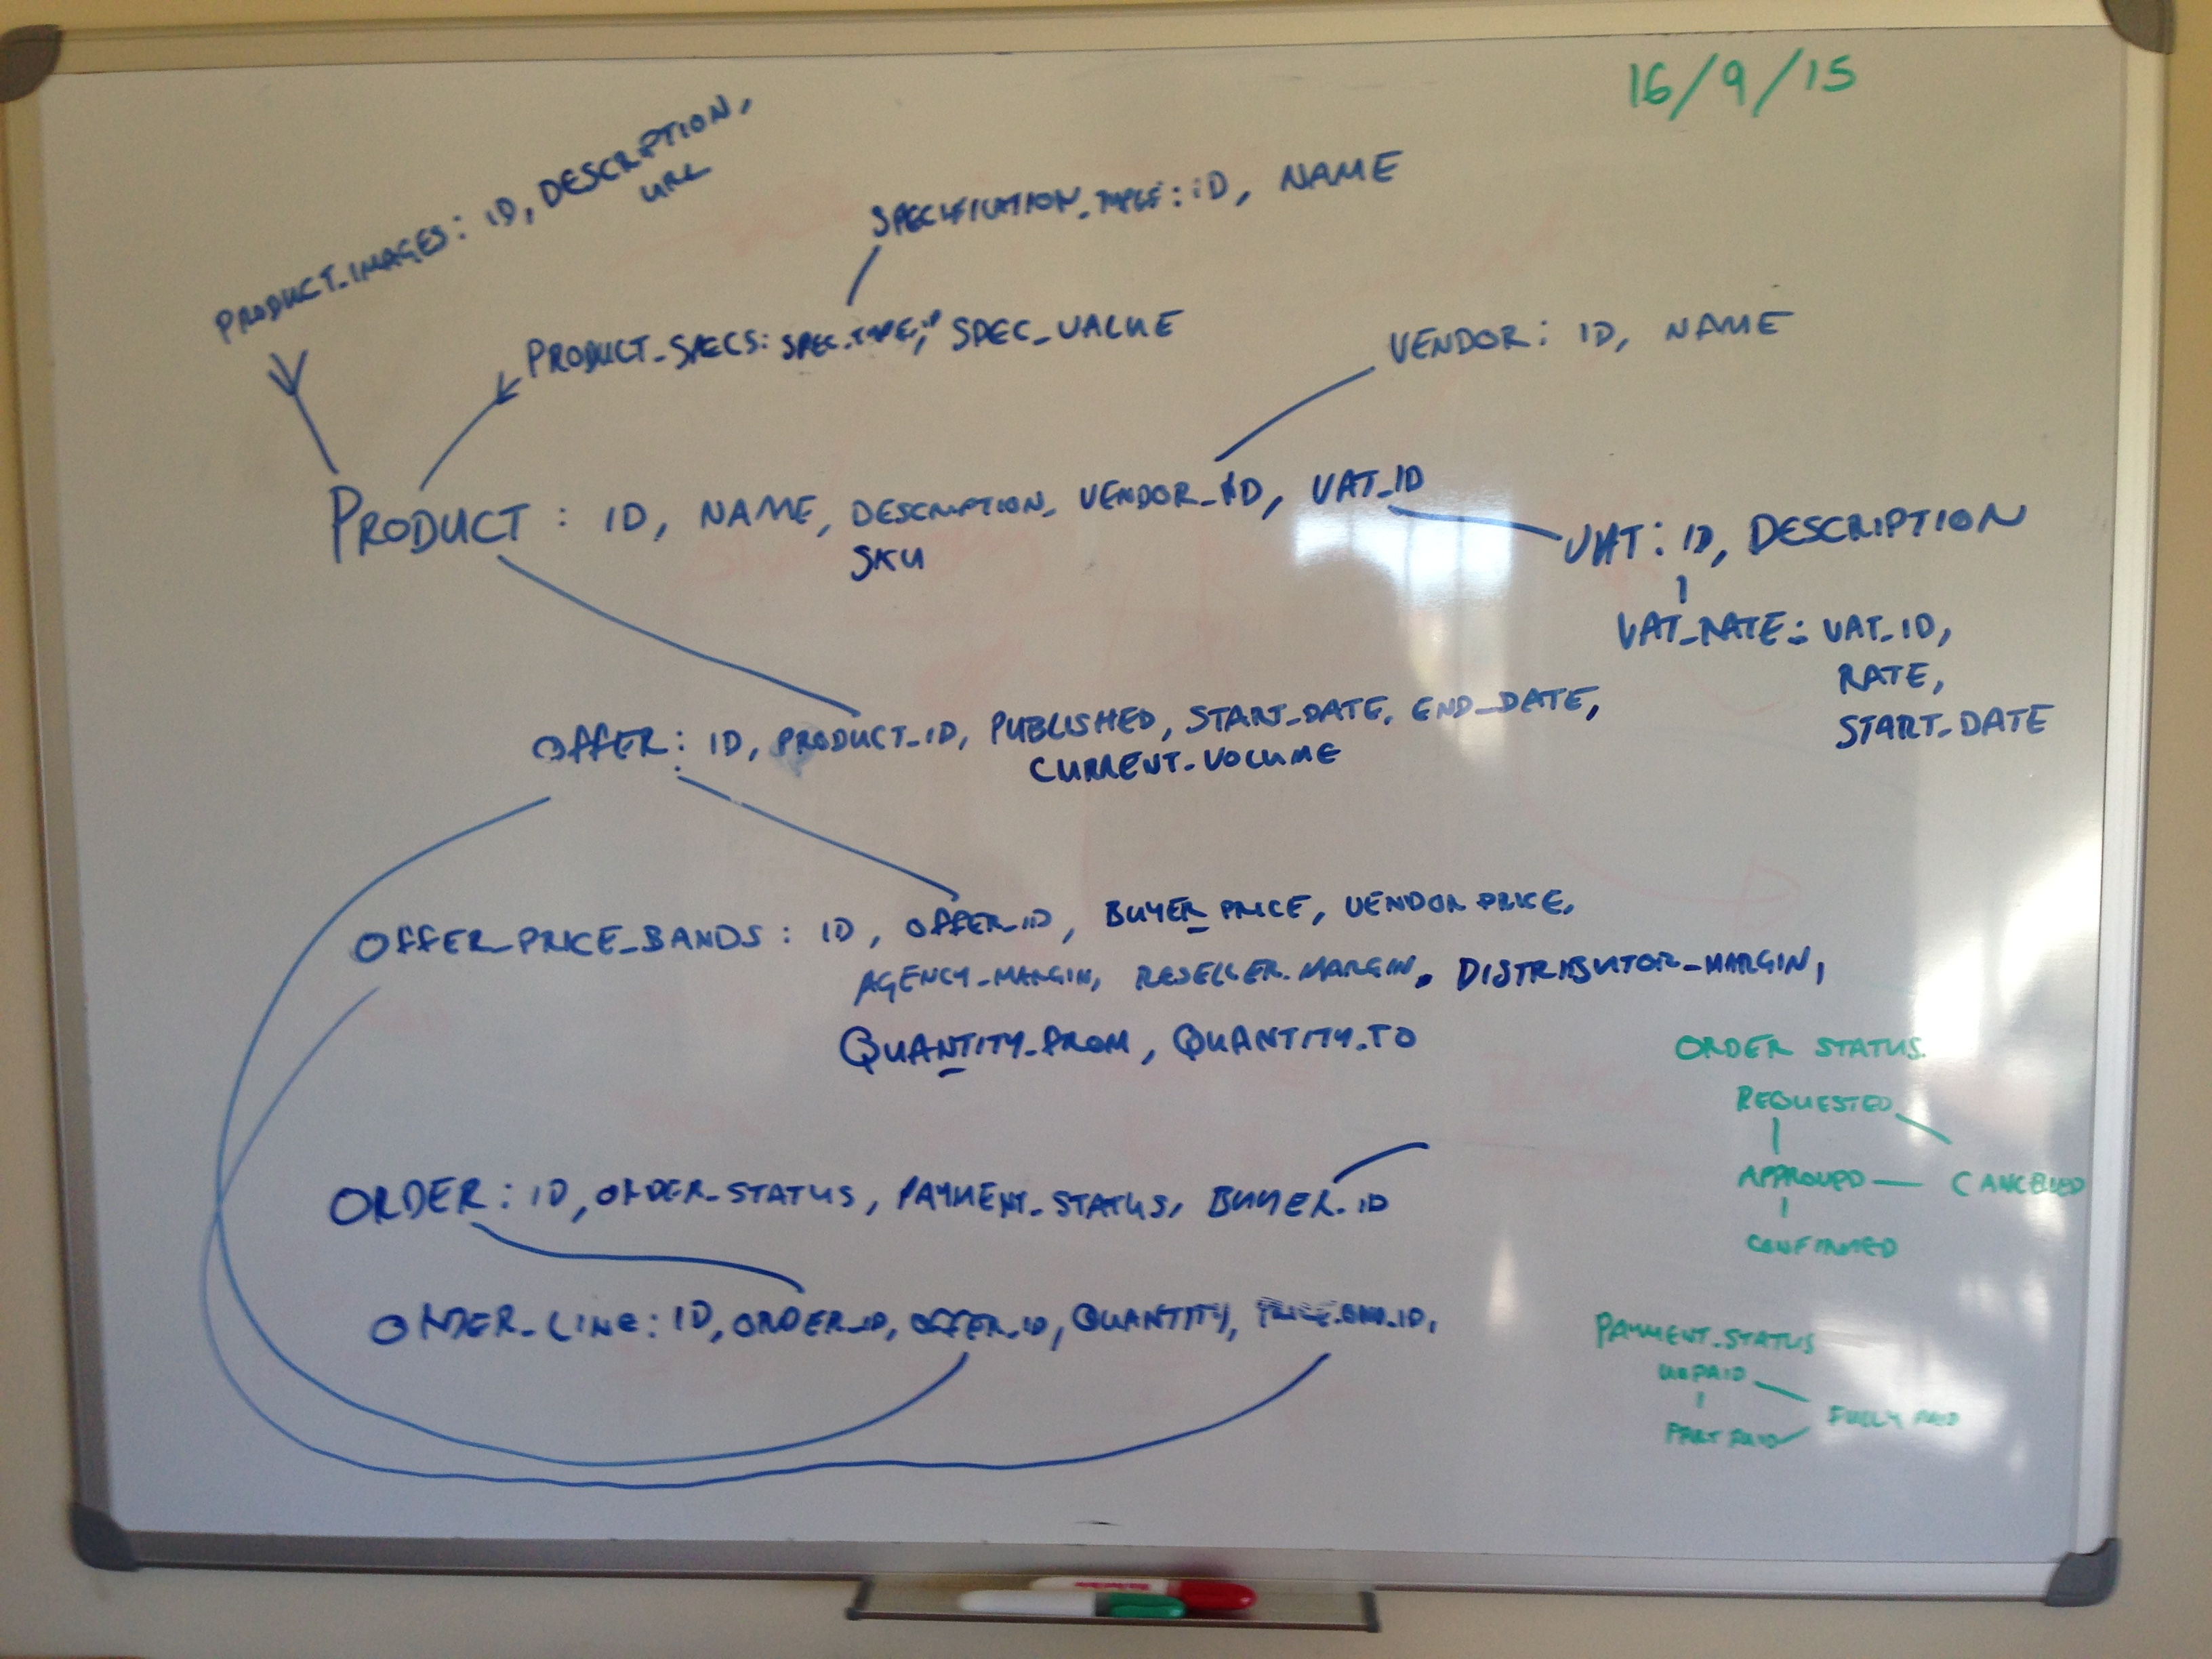 16/9/15
PRODUCT_IMAGES: ID, DESCRIPTION,
URL
SPECIFICATION_TYPE: ID, NAME
PRODUCT_SPECS: SPEC_TYPE, SPEC_VALUE
VENDOR: ID, NAME
PRODUCT: ID, NAME, DESCRIPTION, VENDOR_ID, VAT_ID
SKU
VAT: ID, DESCRIPTION
VAT_RATE: VAT_ID,
RATE,
START_DATE
OFFER: ID, PRODUCT_ID, PUBLISHED, START_DATE, END_DATE,
CURRENT_VOLUME
OFFER_PRICE_BANDS: ID, OFFER_ID, BUYER_PRICE, VENDOR PRICE,
AGENCY_MARGIN, RESELLER_MARGIN, DISTRIBUTOR_MARGIN,
QUANTITY_FROM, QUANTITY_TO
ORDER STATUS
REQUESTED
APPROVED CANCELLED
CONFIRMED
ORDER: ID, ORDER_STATUS, PAYMENT_STATUS, BUYER_ID
ORDER_LINE: ID, ORDER_ID, OFFER_ID, QUANTITY,
PAYMENT_STATUS
UNPAID
FULLY PAID
PART PAID